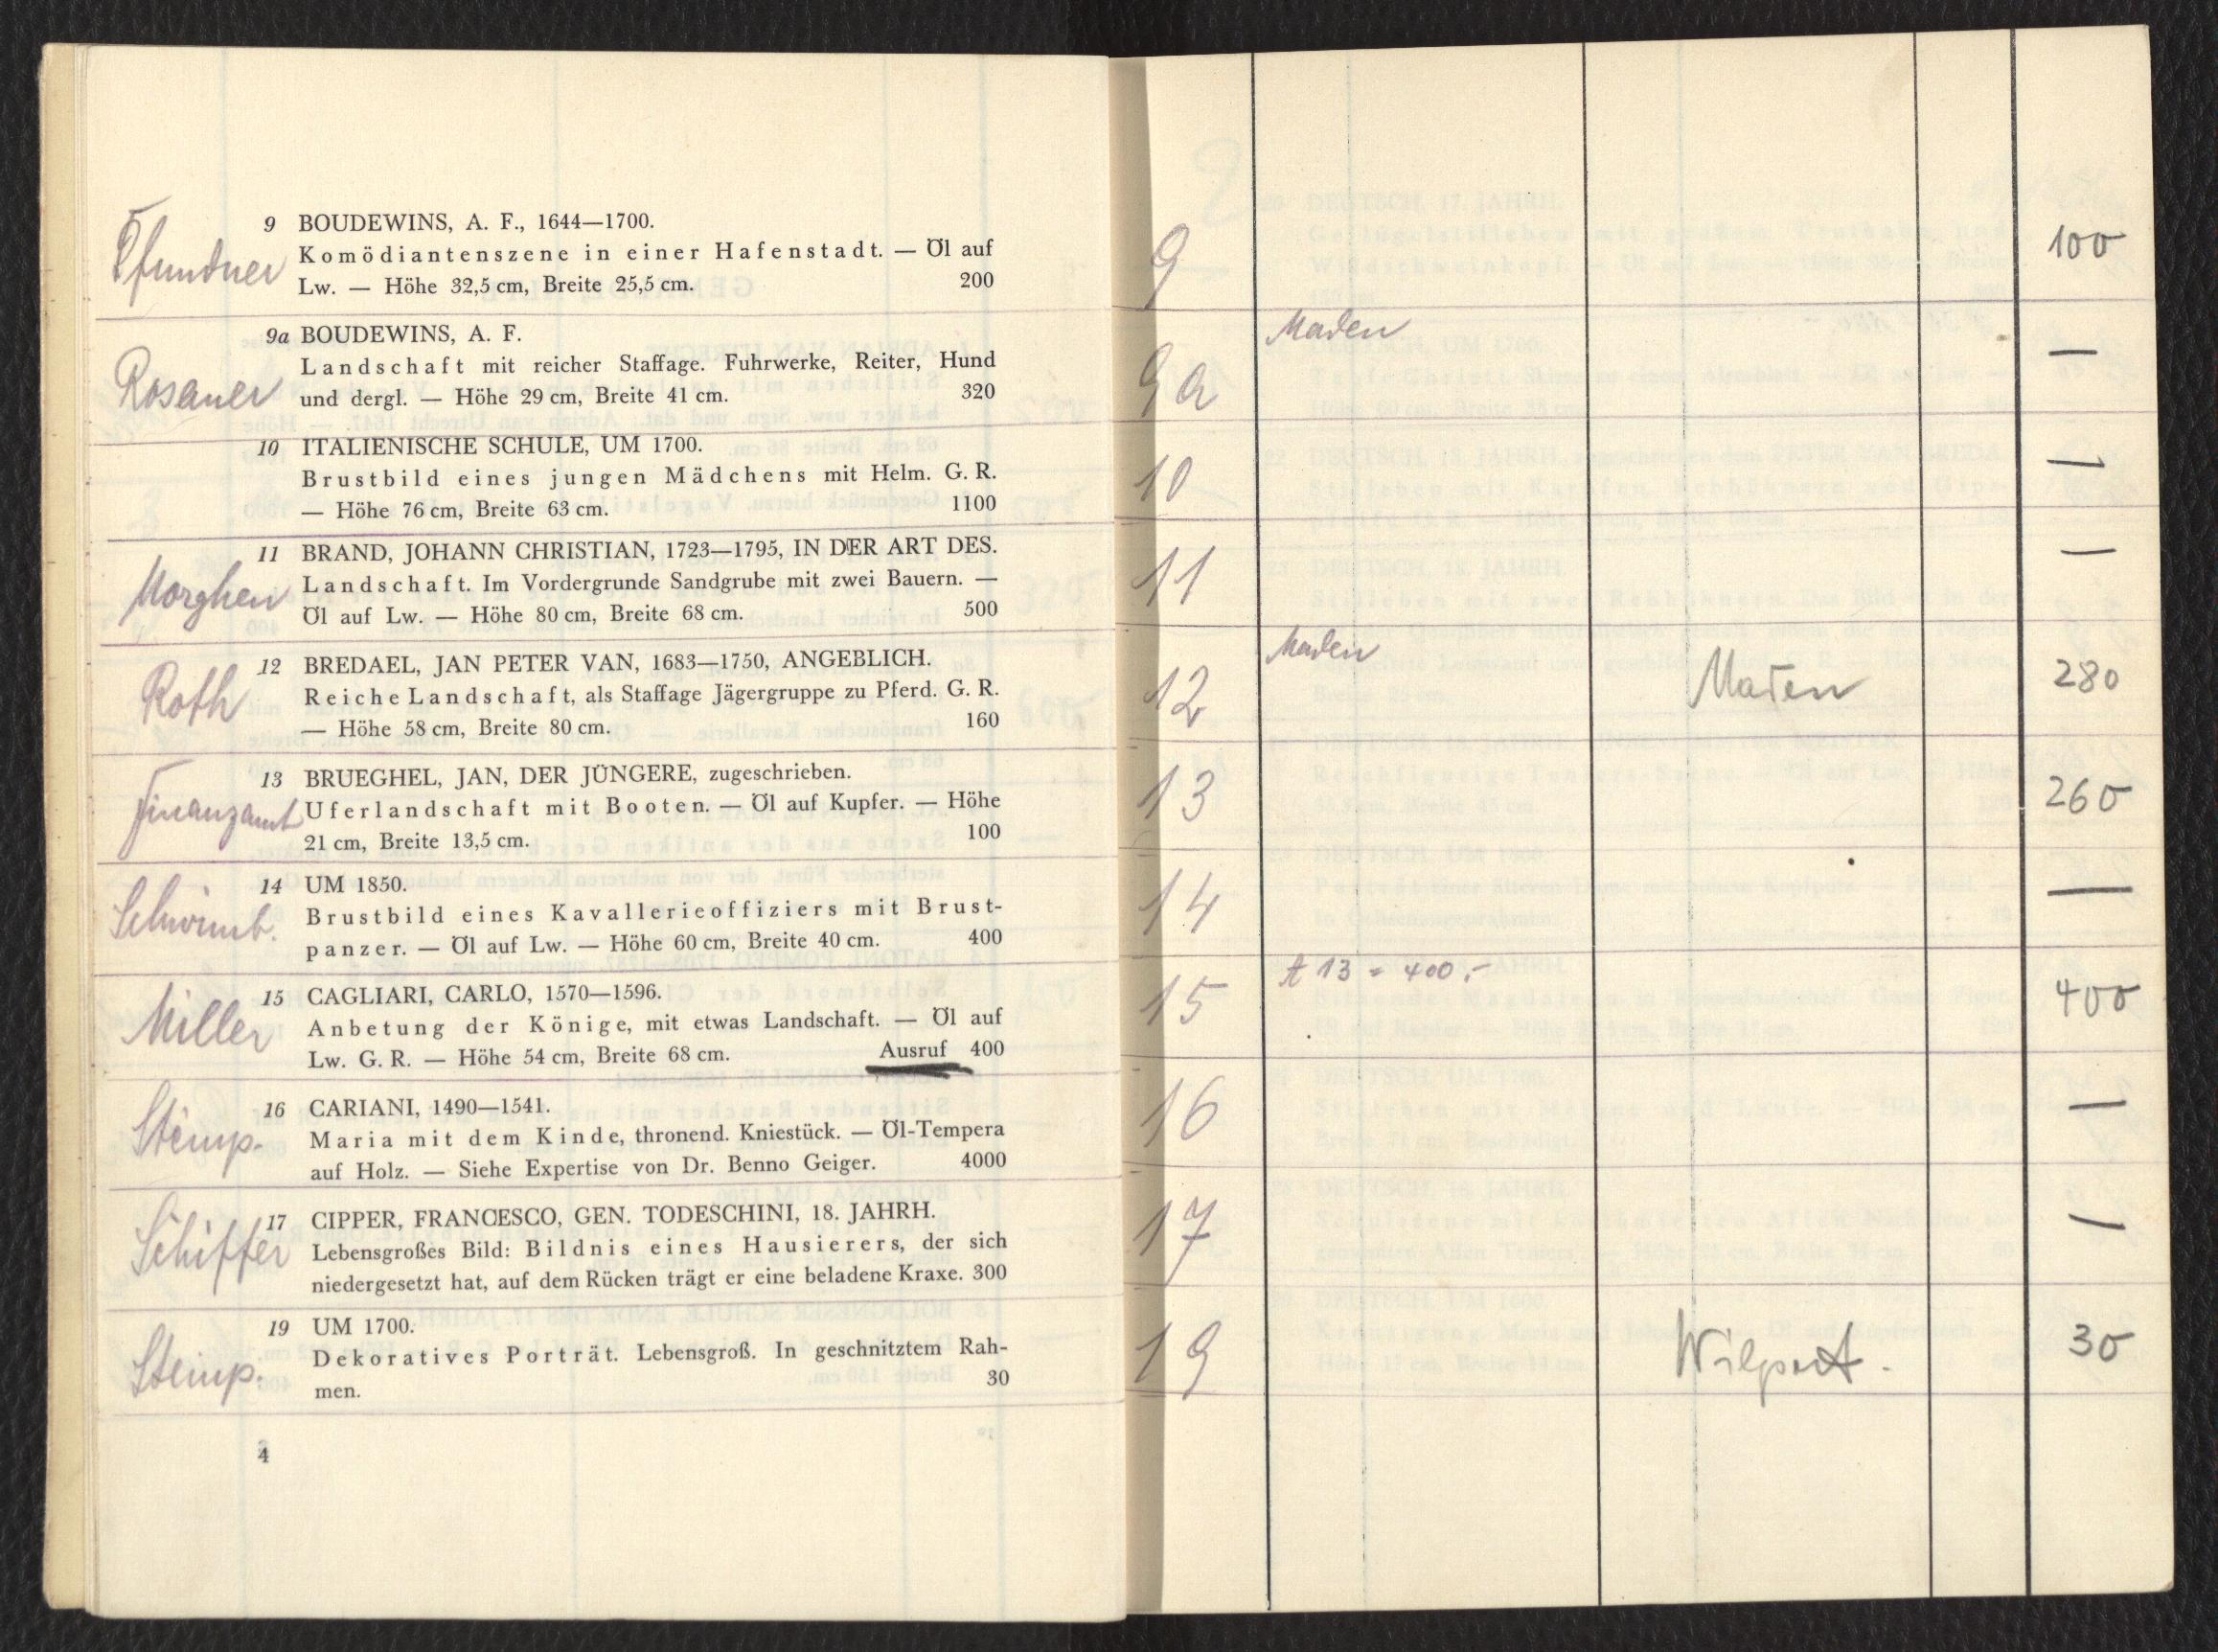 Pfundner
9 BOUDEWINS, A. F., 1644—1700.
Komödiantenszene in einer Hafenstadt. — Öl auf
Lw. — Höhe 32,5 cm, Breite 25,5 cm. 200
Rosauer
9a BOUDEWINS, A. F.
Landschaft mit reicher Staffage. Fuhrwerke, Reiter, Hund
und dergl. — Höhe 29 cm, Breite 41 cm. 320
10 ITALIENISCHE SCHULE, UM 1700.
Brustbild eines jungen Mädchens mit Helm. G. R.
— Höhe 76 cm, Breite 63 cm. 1100
Morghen
11 BRAND, JOHANN CHRISTIAN, 1723—1795, IN DER ART DES.
Landschaft. Im Vordergrunde Sandgrube mit zwei Bauern. —
Öl auf Lw. — Höhe 80 cm, Breite 68 cm. 500
Roth
12 BREDAEL, JAN PETER VAN, 1683—1750, ANGEBLICH.
Reiche Landschaft, als Staffage Jägergruppe zu Pferd. G. R.
— Höhe 58 cm, Breite 80 cm. 160
Finanzamt
13 BRUEGHEL, JAN, DER JÜNGERE, zugeschrieben.
Uferlandschaft mit Booten. — Öl auf Kupfer. — Höhe
21 cm, Breite 13,5 cm. 100
14 UM 1850.
Brustbild eines Kavallerieoffiziers mit Brust-
panzer. — Öl auf Lw. — Höhe 60 cm, Breite 40 cm. 400
Miller
15 CAGLIARI, CARLO, 1570—1596.
Anbetung der Könige, mit etwas Landschaft. — Öl auf
Lw. G. R. — Höhe 54 cm, Breite 68 cm. Ausruf 400
Stemp.
16 CARIANI, 1490—1541.
Maria mit dem Kinde, thronend. Kniestück. — Öl-Tempera
auf Holz. — Siehe Expertise von Dr. Benno Geiger. 4000
Schiffer
17 CIPPER, FRANCESCO, GEN. TODESCHINI, 18. JAHRH.
Lebensgroßes Bild: Bildnis eines Hausierers, der sich
niedergesetzt hat, auf dem Rücken trägt er eine beladene Kraxe. 300
Stemp.
19 UM 1700.
Dekoratives Porträt. Lebensgroß. In geschnitztem Rah-
men. 30
4
9 100
Maden
9a —
10 —
11 —
Maden
12 Maden 280
13 260
14 —
15 t 13 = 400.- 400
16 —
17 —
19 Wilpert. 30